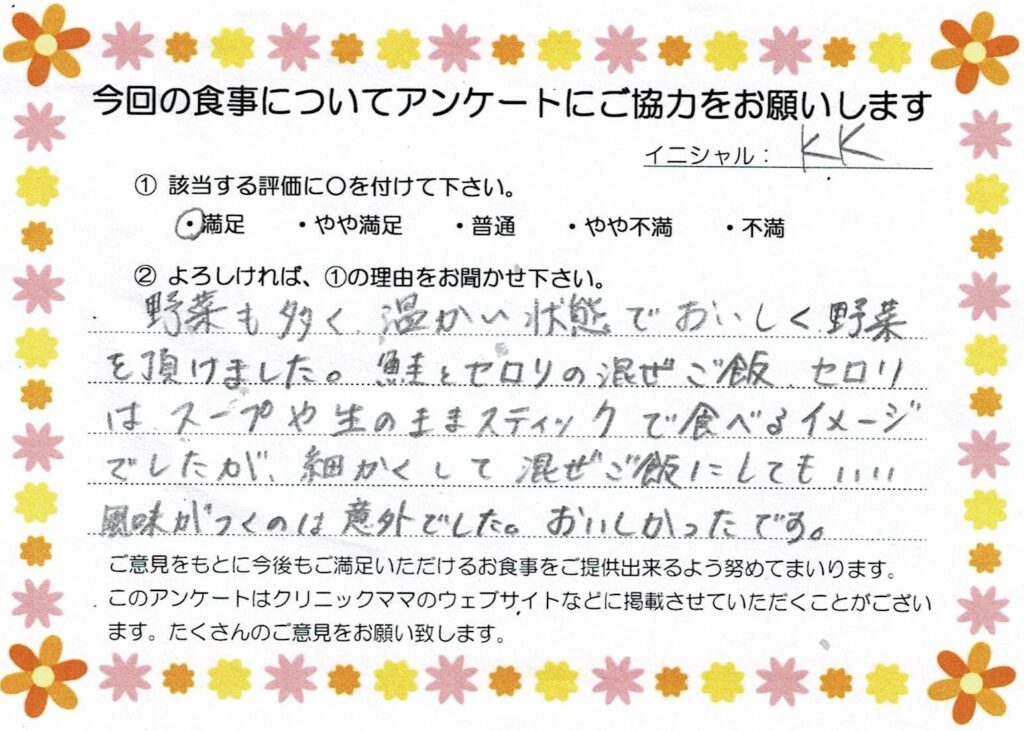 今回の食事についてアンケートにご協力をお願いします
イニシャル： KK
① 該当する評価に〇を付けて下さい。
・満足 ・やや満足 ・普通 ・やや不満 ・不満
② よろしければ、①の理由をお聞かせ下さい。
野菜も多く、温かい状態でおいしく野菜
を頂けました。鮭とセロリの混ぜご飯、セロリ
は、スープや生のままスティックで食べるイメージ
でしたが、細かくして混ぜご飯にしてもいい
風味がつくのは意外でした。おいしかったです。
ご意見をもとに今後もご満足いただけるお食事をご提供出来るよう努めてまいります。
このアンケートはクリニックママのウェブサイトなどに掲載させていただくことがござい
ます。たくさんのご意見をお願い致します。